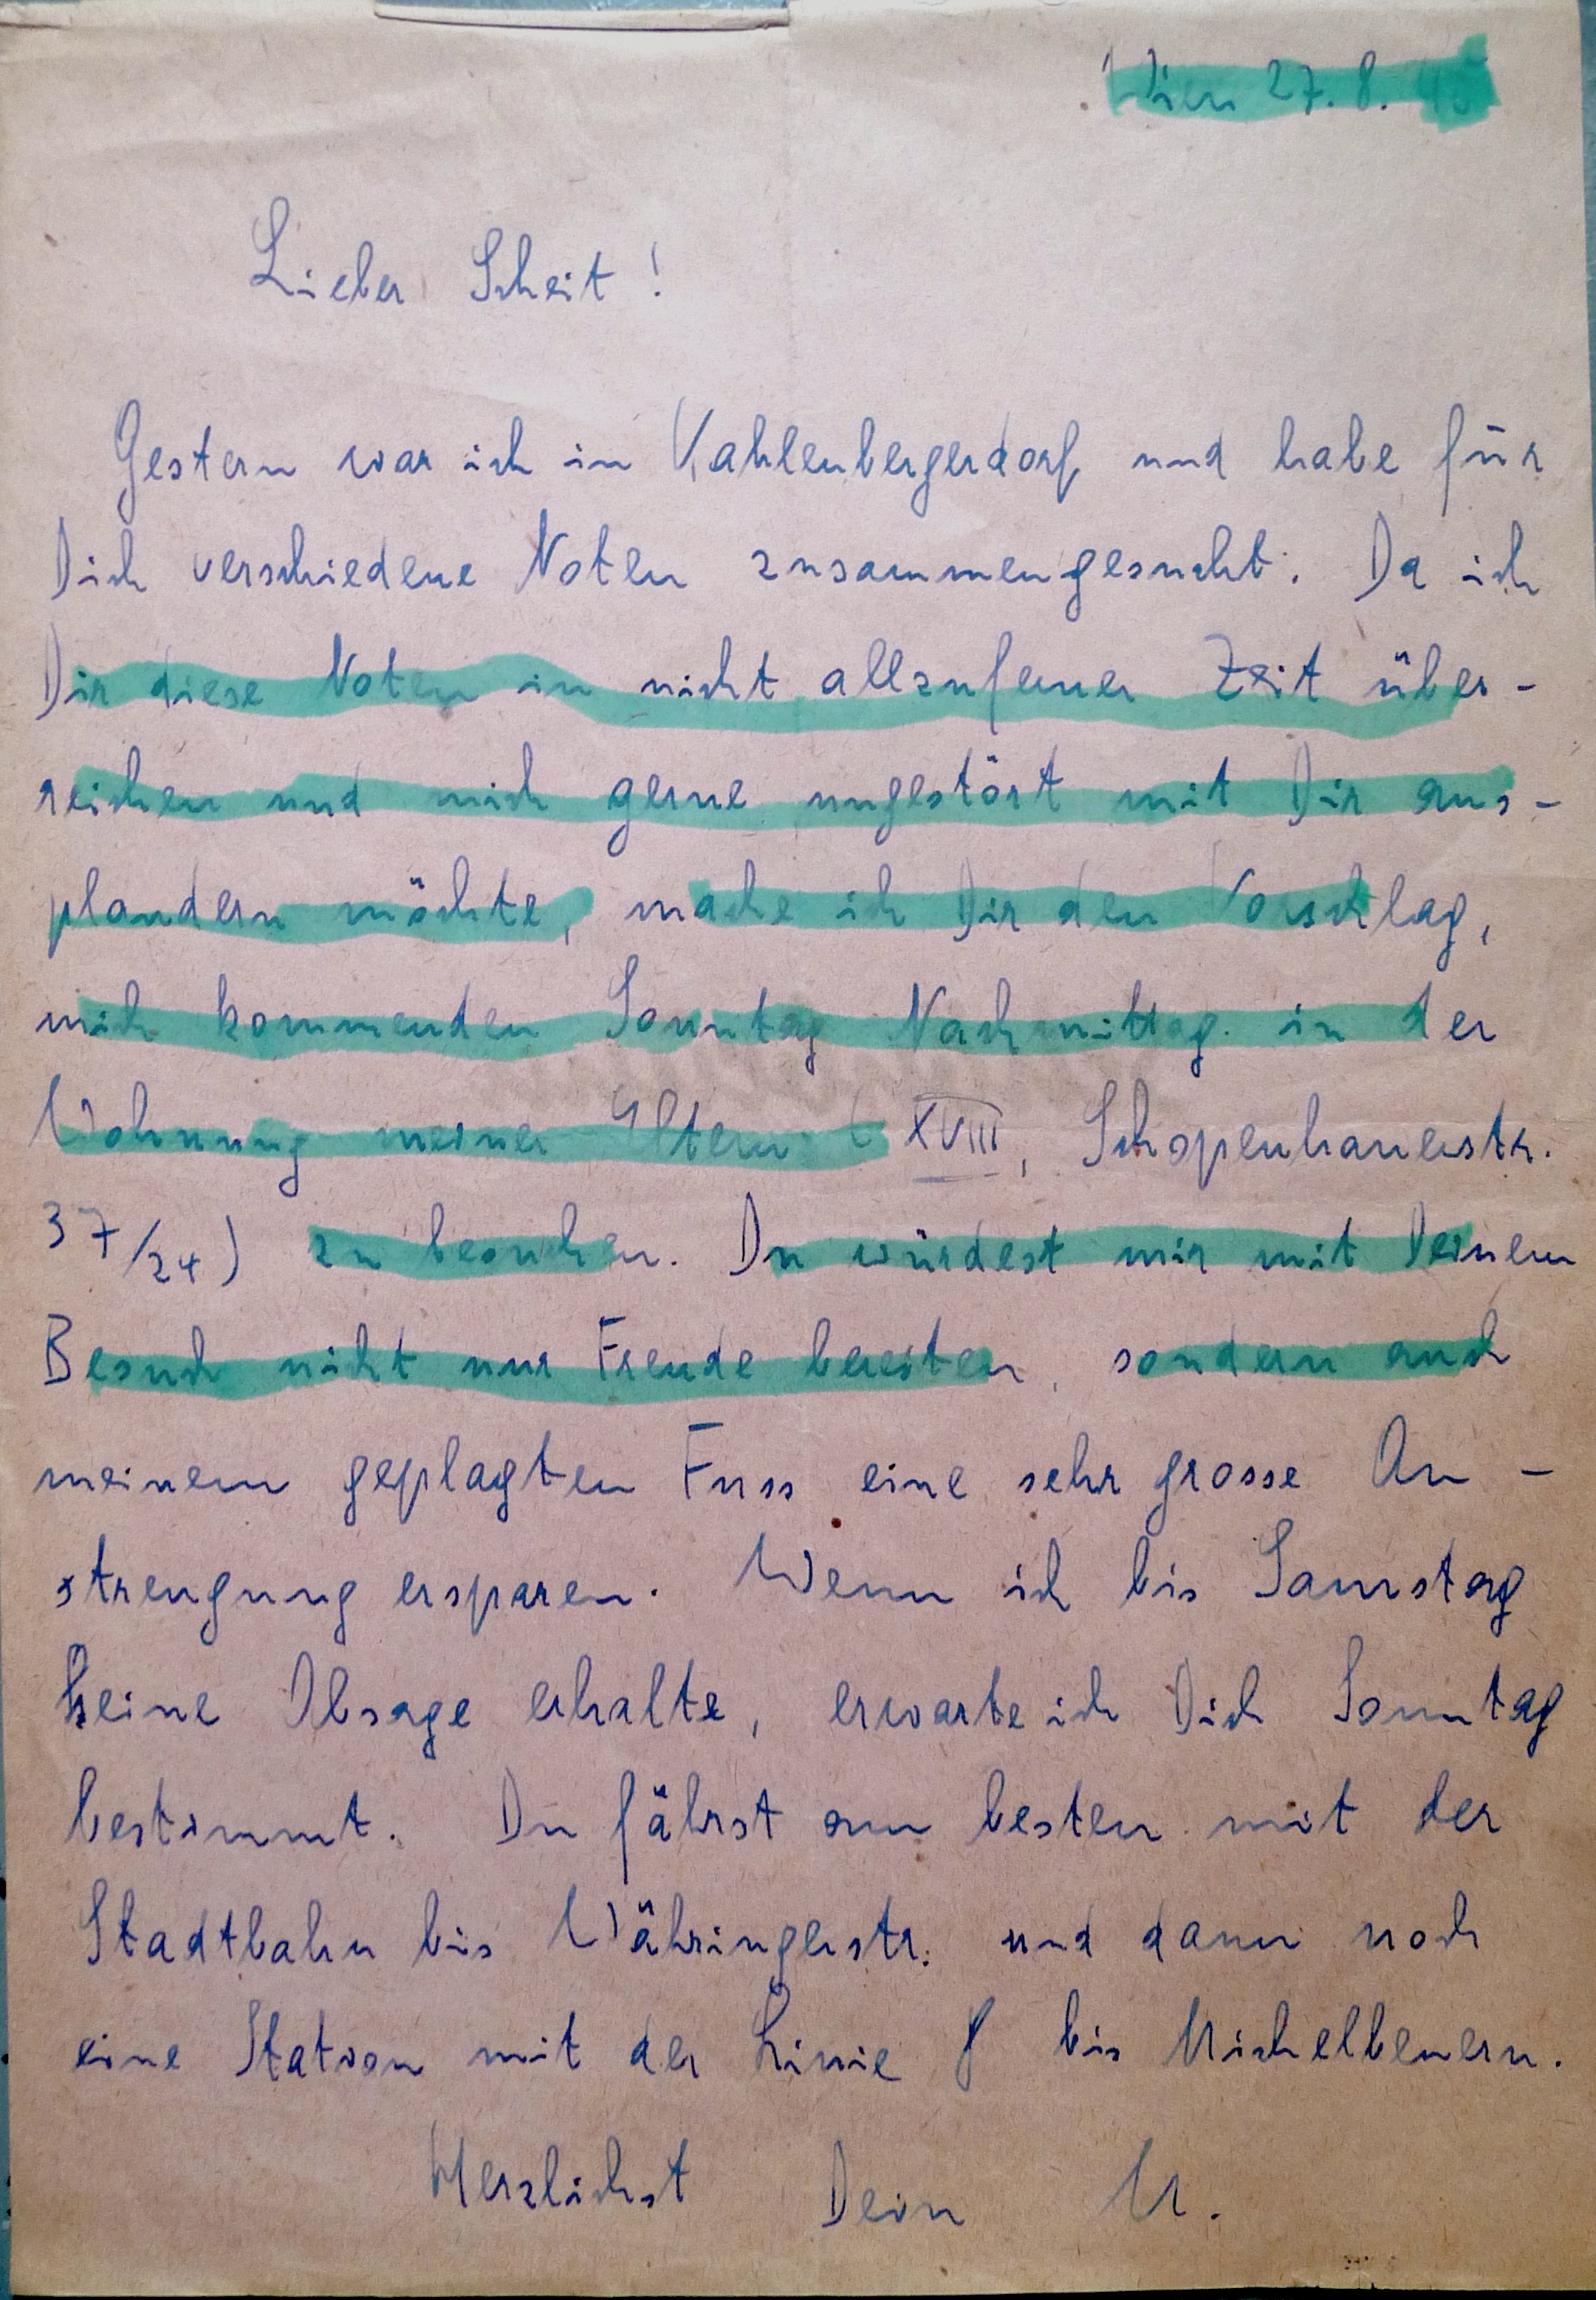 Wien 27. 8. 45
Lieber Scheit!
Gestern war ich in Kahlenbergerdorf und habe für
Dich verschiedene Noten zusammengesucht. Da ich
Dir diese Noten in nicht allzuferner Zeit über-
reichen und mich gerne ungestört mit Dir aus-
plaudern möchte, mache ich Dir den Vorschlag,
mich kommenden Sonntag Nachmittag in der
Wohnung meiner Eltern (XVIII, Schopenhauerstr.
37/24) zu besuchen. Du würdest mir mit Deinem
Besuch nicht nur Freude bereiten, sondern auch
meinem geplagten Fuss eine sehr grosse An-
strengung ersparen. Wenn ich bis Samstag
keine Absage erhalte, erwarte ich Dich Sonntag
bestimmt. Du fährst am besten mit der
Stadtbahn bis Währingerstr. und dann noch
eine Station mit der Linie 8 bis Michelbeuern.
Herzlichst Dein M.